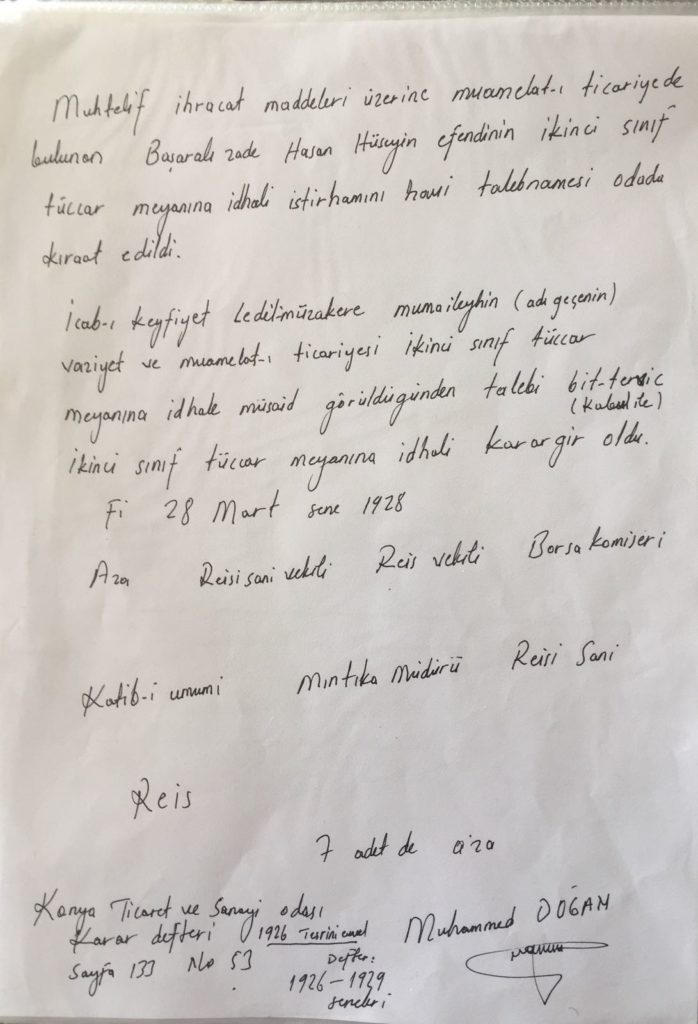 Muhtelif ihracat maddeleri üzerine muamelat-ı ticariyede
bulunan Başaralı zade Hasan Hüseyin efendinin ikinci sınıf
tüccar meyanına idhali istirhamını havi talebnamesi odada
kıraat edildi.
İcab-ı keyfiyet Ledil-müzakere mumaileyhin (adı geçenin)
vaziyet ve muamelat-ı ticariyesi ikinci sınıf tüccar
meyanına idhale müsaid görüldüğünden talebi bit-tervic
(Kabul ile)
ikinci sınıf tüccar meyanına idhali karargir oldu.
Fi 28 Mart sene 1928
Aza Reisi sani vekili Reis vekili Borsa komiseri
Katib-i umumi Mıntıka Müdürü Reisi Sani
Reis
7 adet de a'za
Konya Ticaret ve Sanayi odası
Karar defteri 1926 Teşrinievvel
Sayfa 133 No 53 Defter:
1926-1929
seneleri
Muhammed DOĞAN